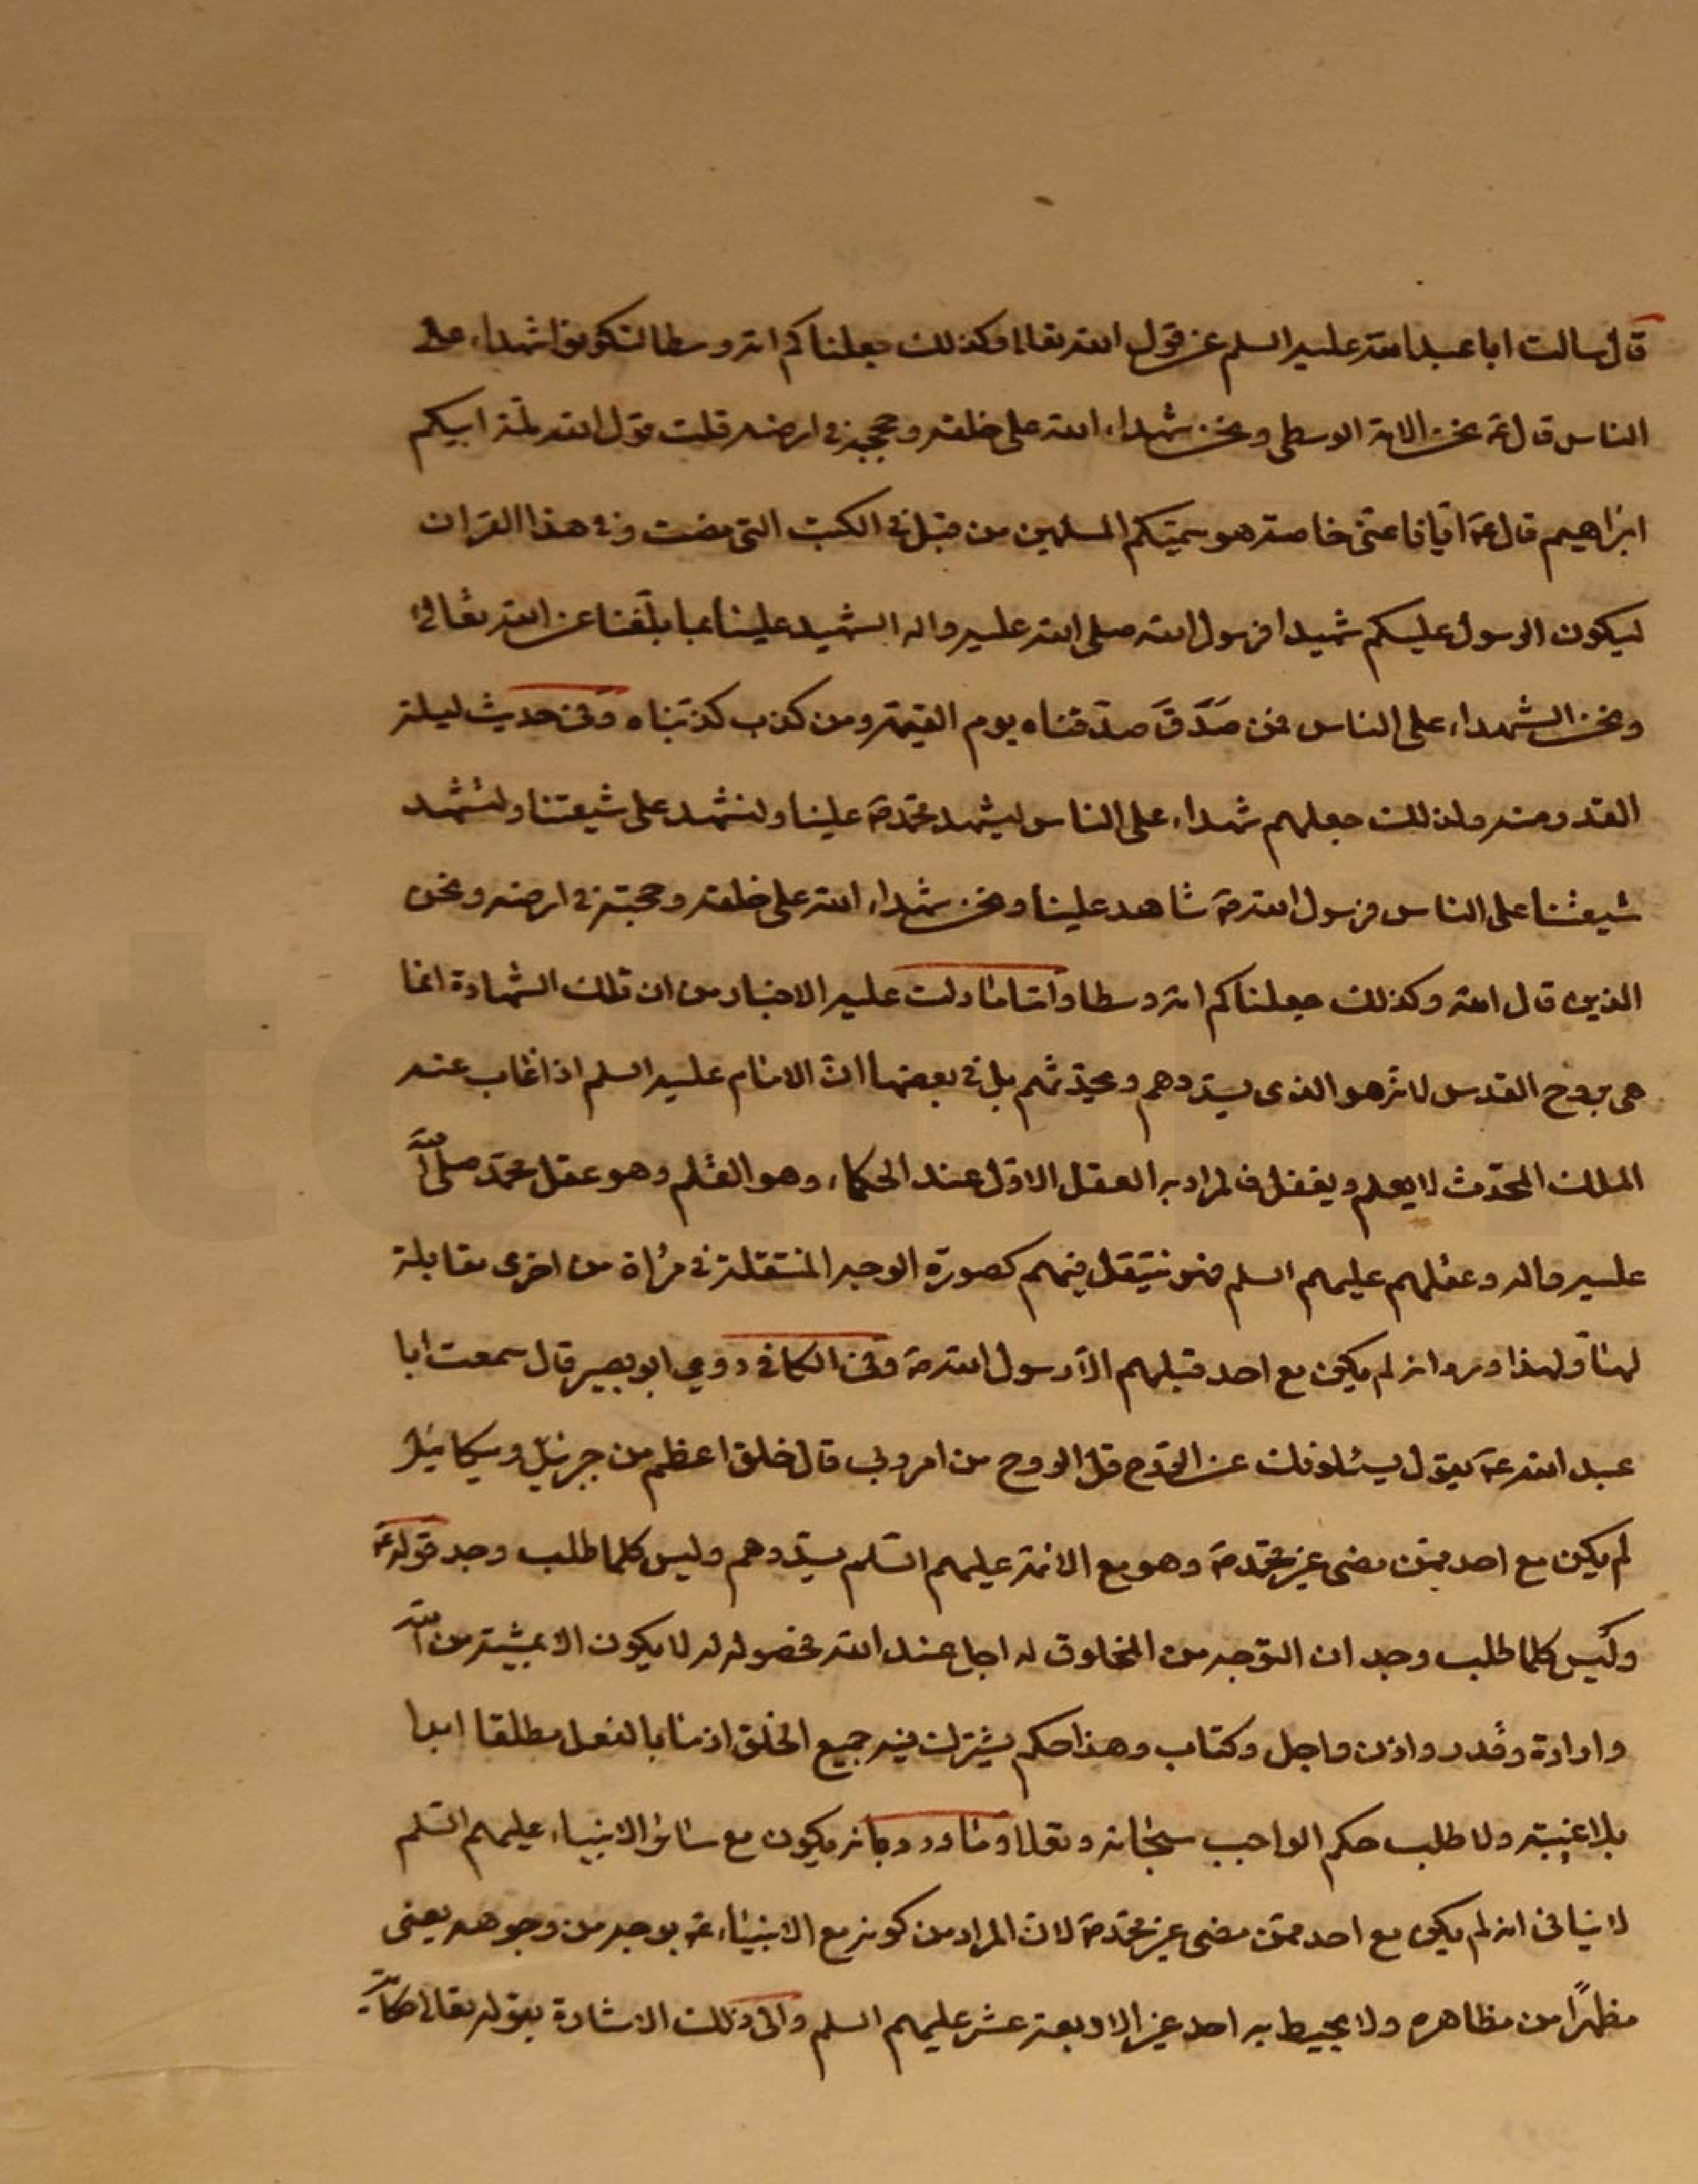 قال سالت ابا عبد الله عليه السلم عن قول الله تعالى وكذلك جعلناكم امة وسطا لتكونوا شهداء على
الناس قال ع نحن الامة الوسطى ونحن شهداء الله على خلقه وحججه في ارضه قلت قول الله ملّة ابيكم
ابراهيم قال ع ايّانا عنى خاصة هو سمّيكم المسلمين من قبل في الكتب التى مضت وفي هذا القران
ليكون الرسول عليكم شهيدا فرسول الله صلى الله عليه واله الشهيد علينا بما بلّغنا عن الله تعالى
ونحن الشهداء على الناس فمن صَدَّقَ صدّقناه يوم القيمة ومن كذب كذّبناه وفى حديث ليلة
القدر ومنه ولذلك جعلهم شهداء على الناس ليشهد محمّد ص علينا ولنشهد على شيعتنا ولتشهد
شيعتنا على الناس فرسول الله ص شاهد علينا ونحن شهداء الله على خلقه وحجته في ارضه ونحن
الذين قال الله وكذلك جعلناكم امة وسطا وامّا ما دلت عليه الاخبار من ان تلك الشهادة انما
هي بروح القدس لانه هو الذى يسدّدهم ويحدّثهم بل في بعضها انّ الامام عليه السلم اذا غاب عنه
الملك المحدّث لا يعلم ويغفل فالمراد به العقل الاوّل عند الحكماء وهو القلم وهو عقل محمّد صلى الله
عليه واله وعقلهم عليهم السلم فهو ينتقل فيهم كصورة الوجه المنتقلة في مرءاة من اخرى مقابلة
لها ولهذا ورد انه لم يكن مع احد قبلهم الّا رسول الله ص وفى الكافى روى ابو بصير قال سمعت ابا
عبد الله ع يقول يسئلونك عن الروح قل الروح من امر ربي قال خلق اعظم من جبرئيل وميكائيل
لم يكن مع احد ممّن مضى غير محمّد ص وهو مع الائمة عليهم السّلم يسدّدهم وليس كلما طلب وجد قوله ع
وليس كلما طلب وجد ان التوجه من المخلوق له اجل عند الله فحصوله له لا يكون الا بمشيّة من الله
وارادة وقدر واذن واجل وكتاب وهذا حكم يشترك فيه جميع الخلق اذ ما بالفعل مطلقا ابدا
بلا غيبة ولا طلب حكم الواجب سبحانه وتعالى وما ورد بانه يكون مع سائر الانبياء عليهم السّلم
لا ينافى انه لم يكن مع احد ممّن مضى غير محمّد ص لانّ المراد من كونه مع الانبياء ع بوجه من وجوهه يعنى
مظهرًا من مظاهره ولا يحيط به احد غير الاربعة عشر عليهم السلم والى ذلك الاشارة بقوله تعالى